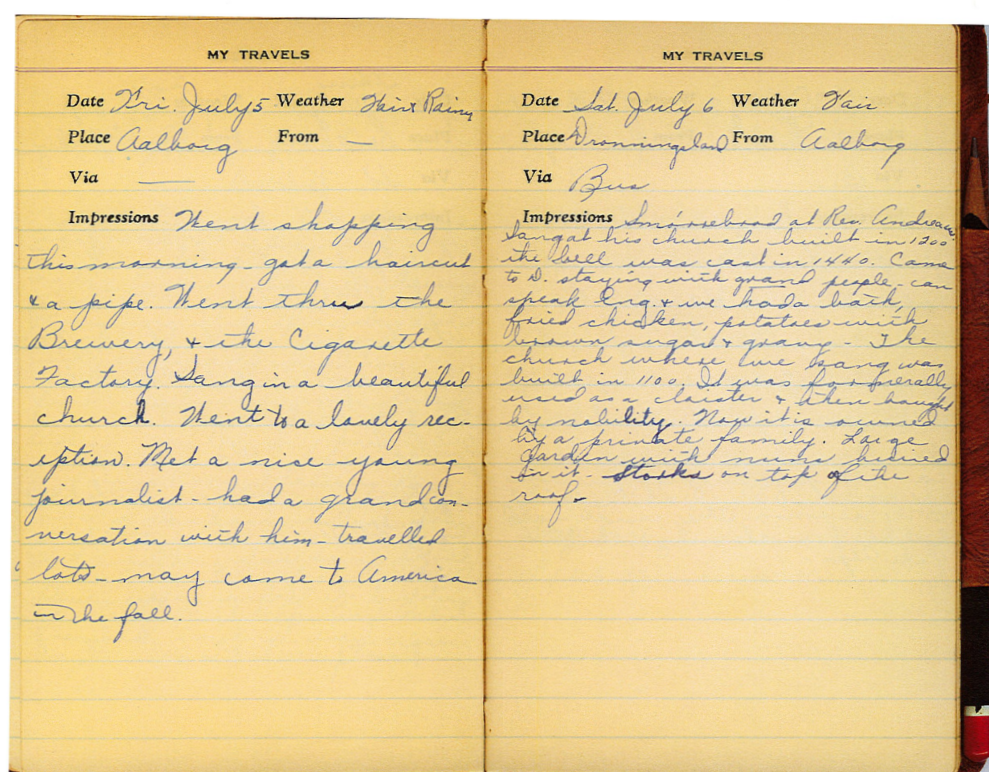 MY TRAVELS
Date Fri. July 5 Weather Fair & Rainy
Place Aalborg From —
Via —
Impressions Went shopping
this morning - got a haircut
& a pipe. Went thru the
Brewery, & the Cigarette
Factory. Sang in a beautiful
church. Went to a lovely rec-
eption. Met a nice young
journalist - had a grand con-
versation with him - travelled
lots - may come to America
in the fall.
MY TRAVELS
Date Sat. July 6 Weather Fair
Place Dronningsland From Aalborg
Via Bus
Impressions Smörrebrod at Rev.
Sang at his church built in 1200
the bell was cast in 1440. Came
to D. staying with grand people - can
speak Eng. & we had a bath,
fried chicken, potatoes with
brown sugar & gravy - The
church where we sang was
built in 1100. It was formerally
used as a claister & then bought
by nobility. Now it is owned
by a private family. Large
garden with nuns buried
in it - Storks on top of the
roof -